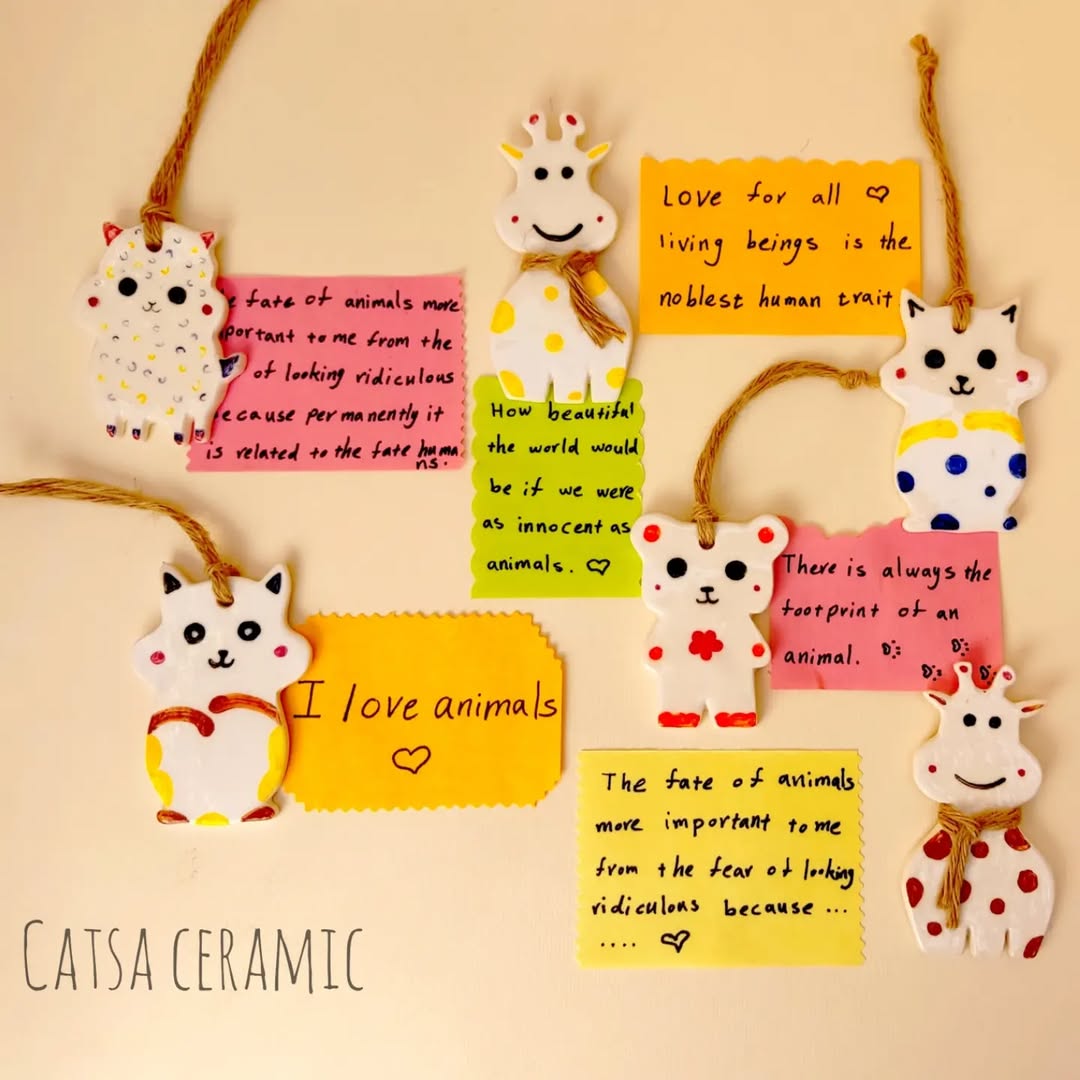 Love for all
living beings is the
noblest human trait
fate of animals more
to me from the
of looking ridiculous
permanently it
is related to the fate huma
ns.
How beautiful
the world would
be if we were
as innocent as
animals.
There is always the
footprint of an
animal.
I love animals
The fate of animals
more important to me
from the fear of looking
ridiculous because ...
....
CATSA CERAMIC